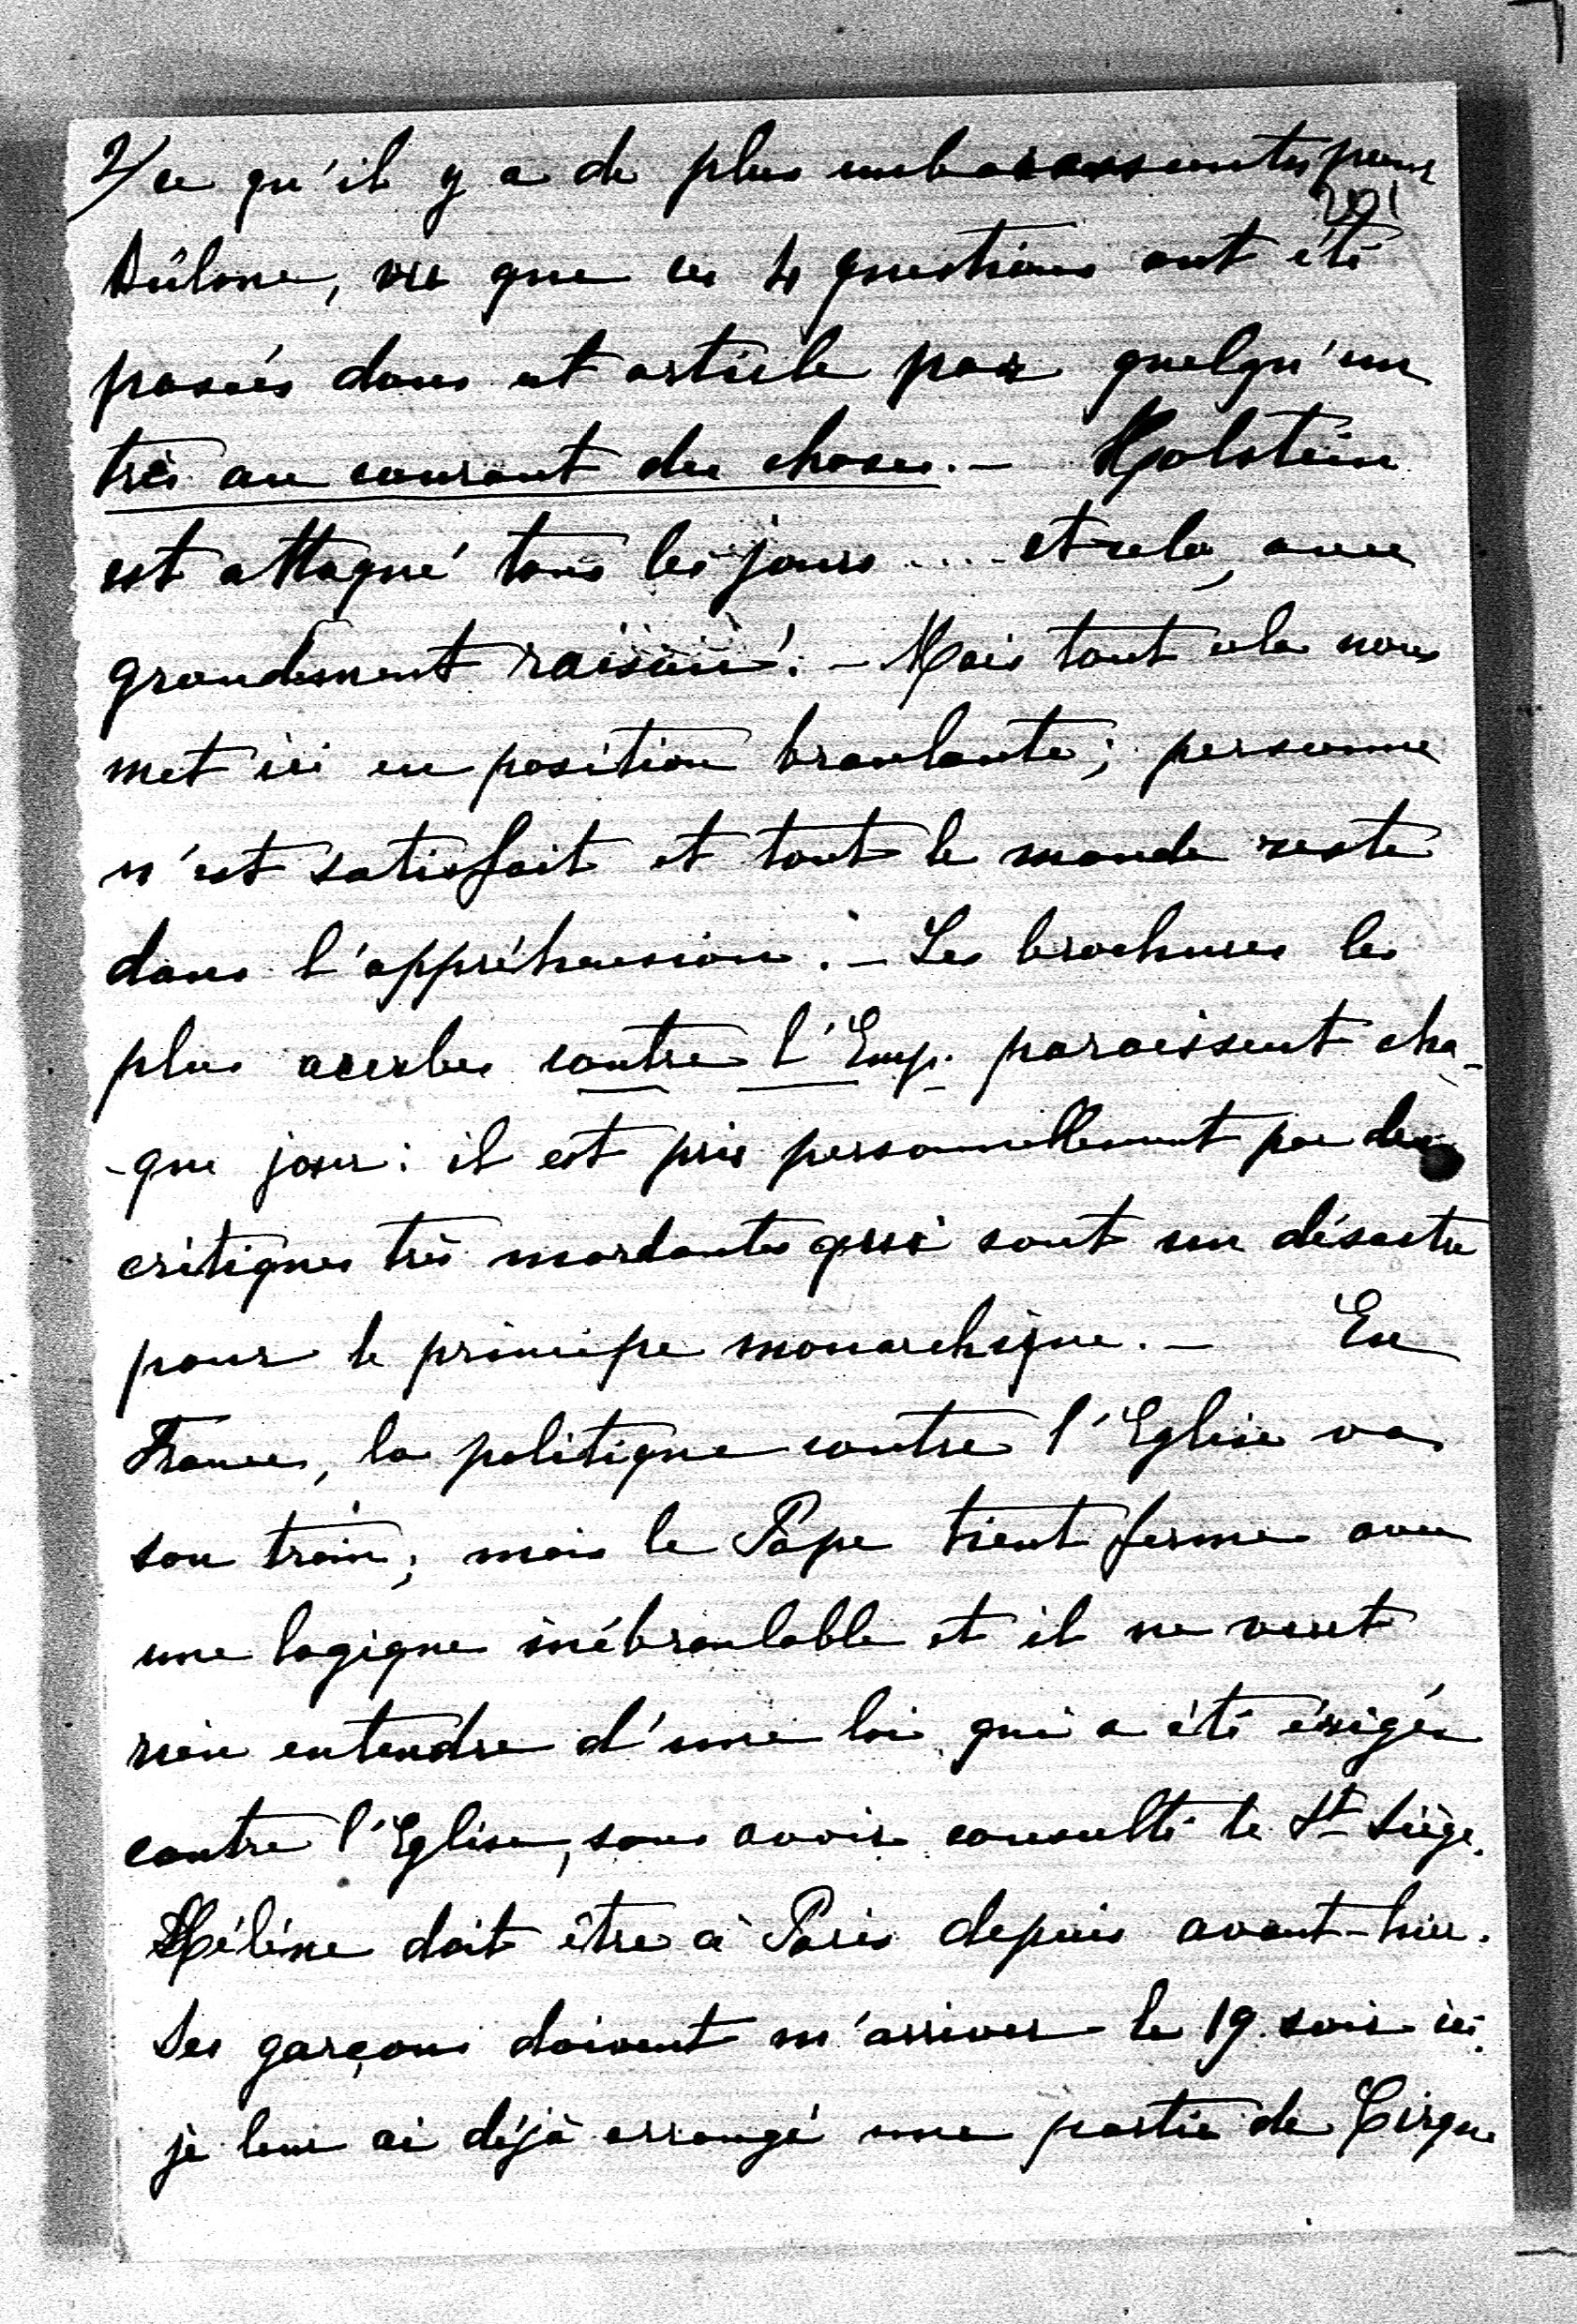 2/ ce qu'il y a de plus embarassantes pour
201
Bülow, vu que ces 4 questions ont été
posées dans cet article par quelqu'un
très au courant des choses. – Holstein
est attaqué tous les jours .... et cela, avec
grandement raison! – Mais tout cela nous
met ici en position branlante; personne
n'est satisfait et tout le monde reste
dans l'appréhension. – Les brochures les
plus acerbes contre l'Emp. paraissent cha-
-que jour: il est pris personnellement par des
critiques très mordantes qui sont un désastre
pour le principe monarchique. – En
France, la politique contre l'Eglise va
son train; mais le Pape tient ferme avec
une logique inébranlable et il ne veut
rien entendre d'une loi qui a été érigée
contre l'Eglise, sans avoir consulté le St Siège.
Hélène doit être à Paris depuis avant-hier.
Ses garçons doivent m'arriver le 19. soir ici.
je leur ai déjà arrangé une partie de Cirque